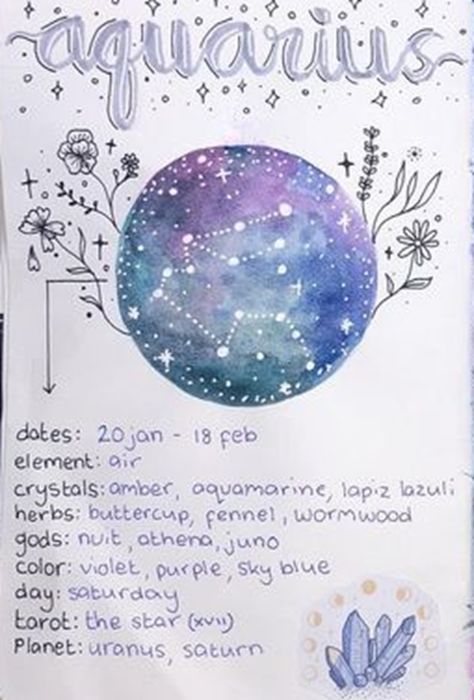 aquarius
dates: 20 jan - 18 feb
element: air
crystals: amber, aquamarine, lapiz lazuli
herbs: buttercup, fennel, wormwood
gods: nuit, athena, juno
color: violet, purple, sky blue
day: saturday
tarot: the star (xvii)
Planet: uranus, saturn